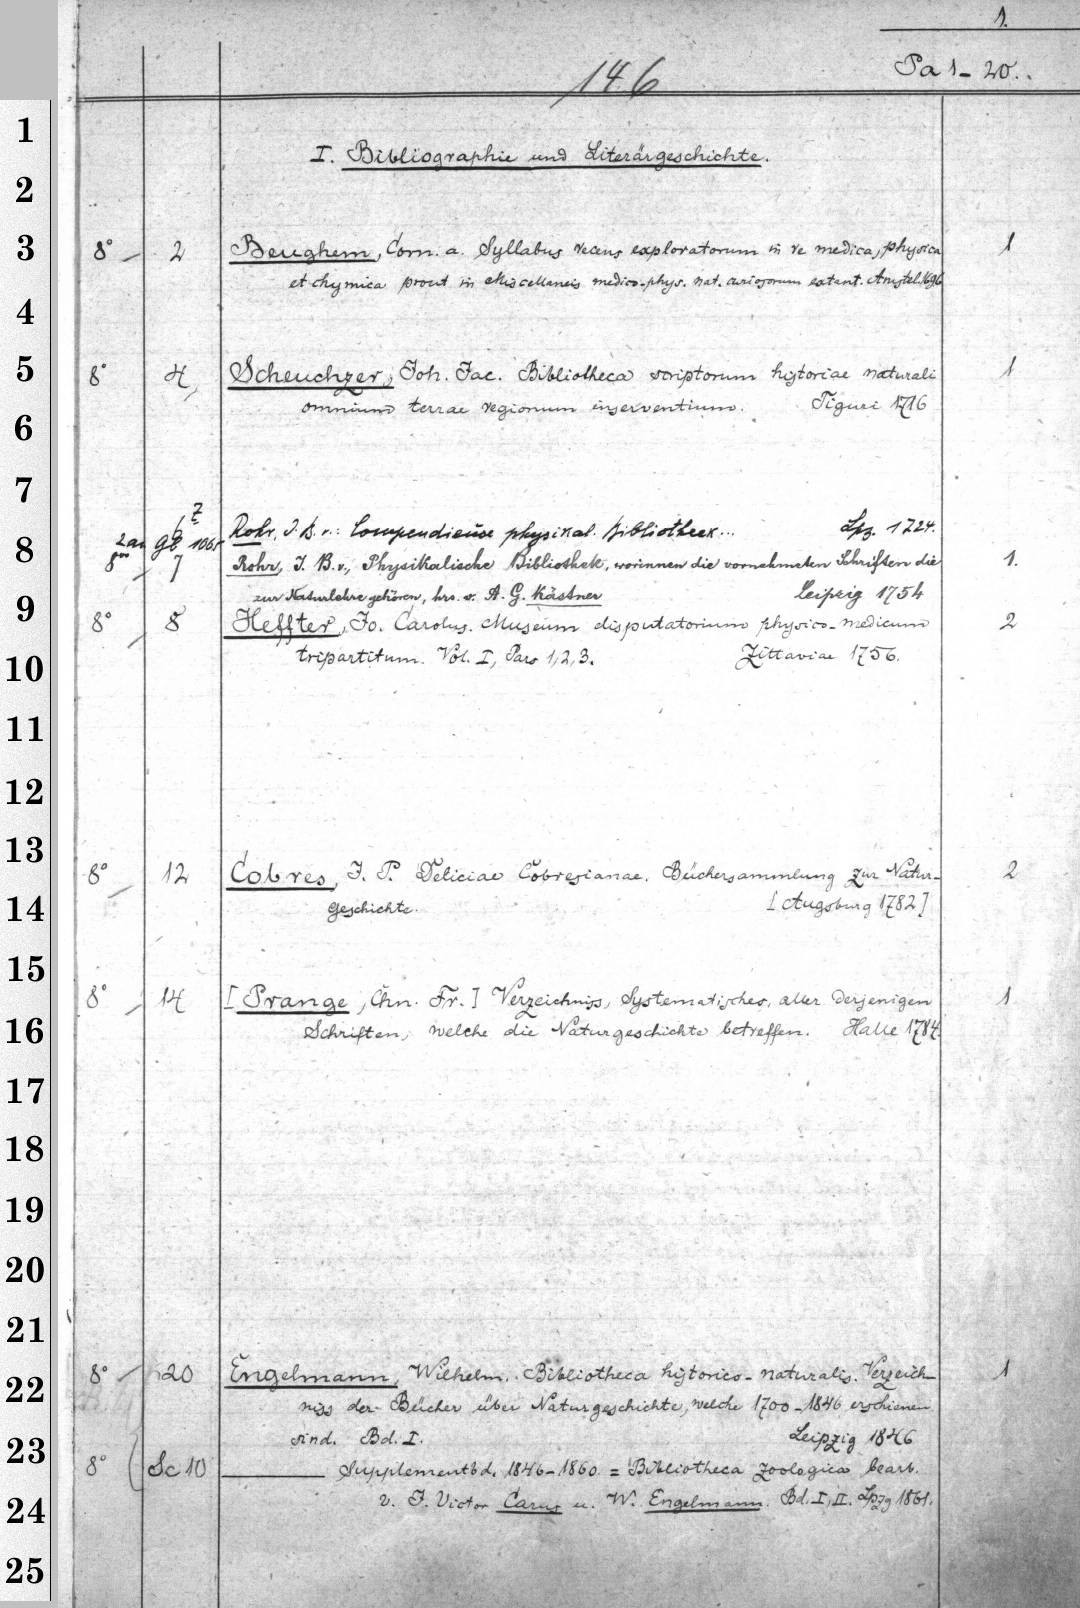 1.
146 Pa 1-20.
1
I. Bibliographie und Literärgeschichte.
2
3 8° 2 Beughem, Corn. a. Syllabus recens exploratorum in re medica, physica 1
et chymica prout in Miscellaneis medico-phys. nat. curiosorum extant. Amstel. 1696
4
5 8° 4, Scheuchzer, Joh. Jac. Bibliotheca scriptorum historiae naturali 1
omnium terrae regionum inserventium. Tiguri 1716
6
7
Rohr, J. B. v.: Compendieuse physikal. Bibliotheek... Lpz. 1724.
8 8° 7 Rohr, J. B. v., Physikalische Bibliothek, worinnen die vornehmsten Schriften die 1.
zur Naturlehre gehören, hrs. v. A. G. Kästner Leipzig 1754
9 8° 8 Heffter, Jo. Carolus. Museum disputatorium physico-medicum 2
10 tripartitum. Vol. I, Pars 1, 2, 3. Zittaviae 1756.
11
12
13 8° 12 Cobres, J. P. Deliciae Cobresianae. Büchersammlung zur Natur- 2
14 geschichte. [Augsburg 1782]
15 8° 14 [Prange, Chn. Fr.] Verzeichniss, Systematisches, aller derjenigen 1
16 Schriften, welche die Naturgeschichte betreffen. Halle 1784.
17
18
19
20
21
22 8° 20 Engelmann, Wilhelm. Bibliotheca historico-naturalis. Verzeich- 1
niss der Bücher über Naturgeschichte, welche 1700-1846 erschienen
23 sind. Bd. I. Leipzig 1846
8° Sc 10 Supplementbd. 1846-1860 = Bibliotheca zoologica bearb.
24 v. J. Victor Carus u. W. Engelmann. Bd. I, II. Lpzg 1861.
25